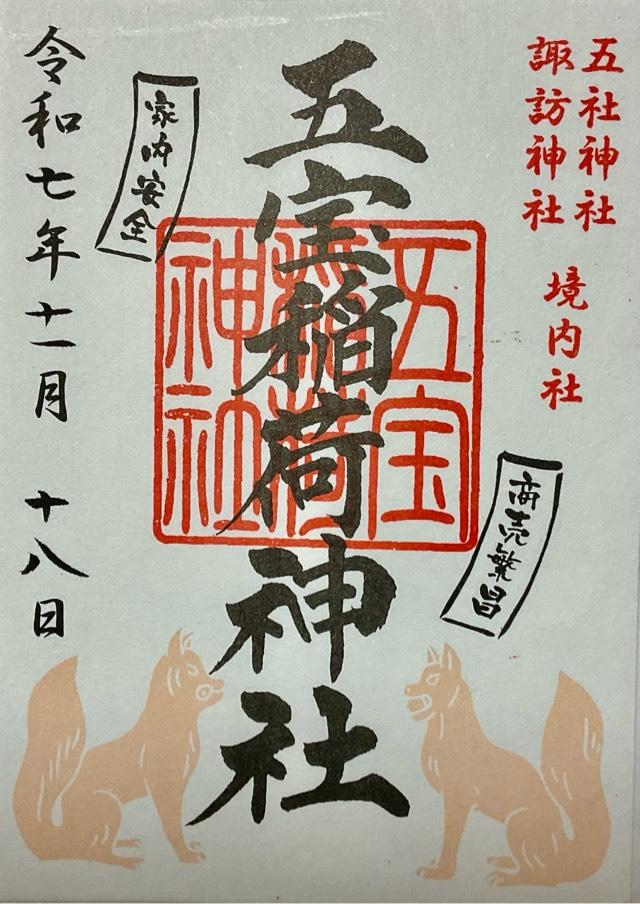 五社神社
諏訪神社
境内社
五宝稲荷神社
五宝
稲荷
神社
商売繁昌
家内安全
令和七年十一月 十八日